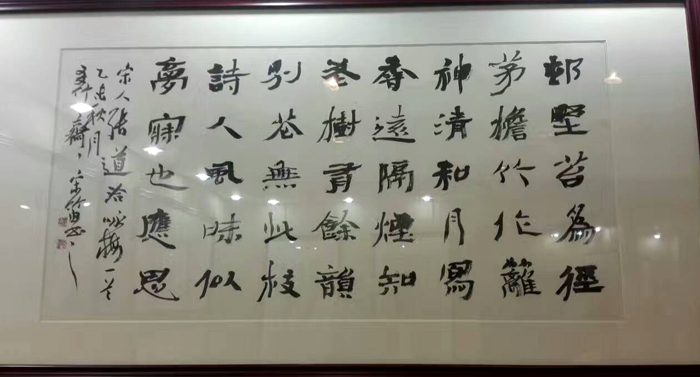 邨墅苔為徑
茅檐竹作籬
神清和月寫
香遠隔煙知
老樹有餘韻
別花無此枝
詩人風味似
夢寐也應思
宋人張道洽咏梅一首
秋月